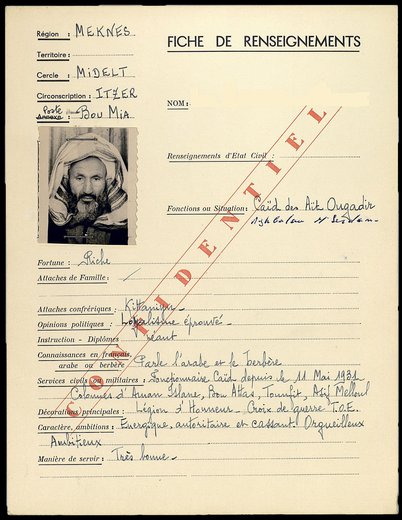 Région : MEKNÈS
FICHE DE RENSEIGNEMENTS
Territoire :
Cercle : MiDELT
Circonscription : ITZER
Poste
Annexe : Bou Mia
NOM :
CONFIDENTIEL
Renseignements d'Etat Civil :
Fonctions ou Situation : Caïd des Aït Ougadir
Fortune : Riche
Attaches de Famille :
Attaches confrériques : Kittaniya
Opinions politiques : Loyalisme éprouvé
Instruction - Diplômes : Néant
Connaissances en français,
arabe ou berbère Parle l'arabe et le berbère
Services civils ou militaires : Fonctionnaire Caïd depuis le 11 Mai 1931
Colonnes d'Aman Islane, Bou Attas, Tounfit, Asif Melloul
Décorations principales : Légion d'Honneur - Croix de guerre T.O.E.
Caractère, ambitions : Energique, autoritaire et cassant. Orgueilleux
Ambitieux
Manière de servir : Très bonne -